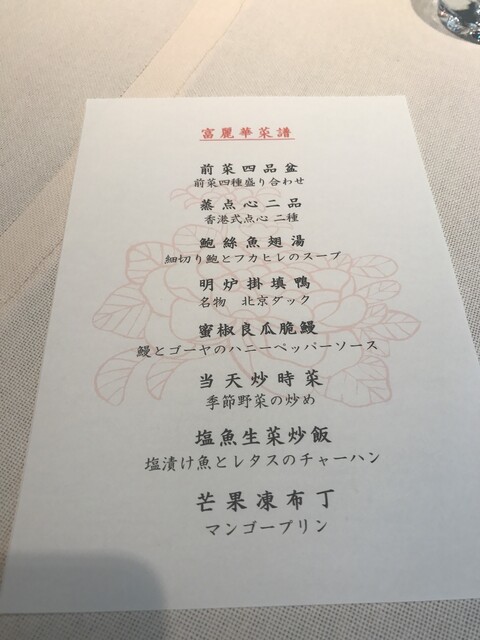 富麗華菜譜
前菜四品盆
前菜四種盛り合わせ
蒸点心二品
香港式点心 二種
鮑絲魚翅湯
細切り鮑とフカヒレのスープ
明炉掛填鴨
名物　北京ダック
蜜椒良瓜脆鰻
鰻とゴーヤのハニーペッパーソース
当天炒時菜
季節野菜の炒め
塩魚生菜炒飯
塩漬け魚とレタスのチャーハン
芒果凍布丁
マンゴープリン